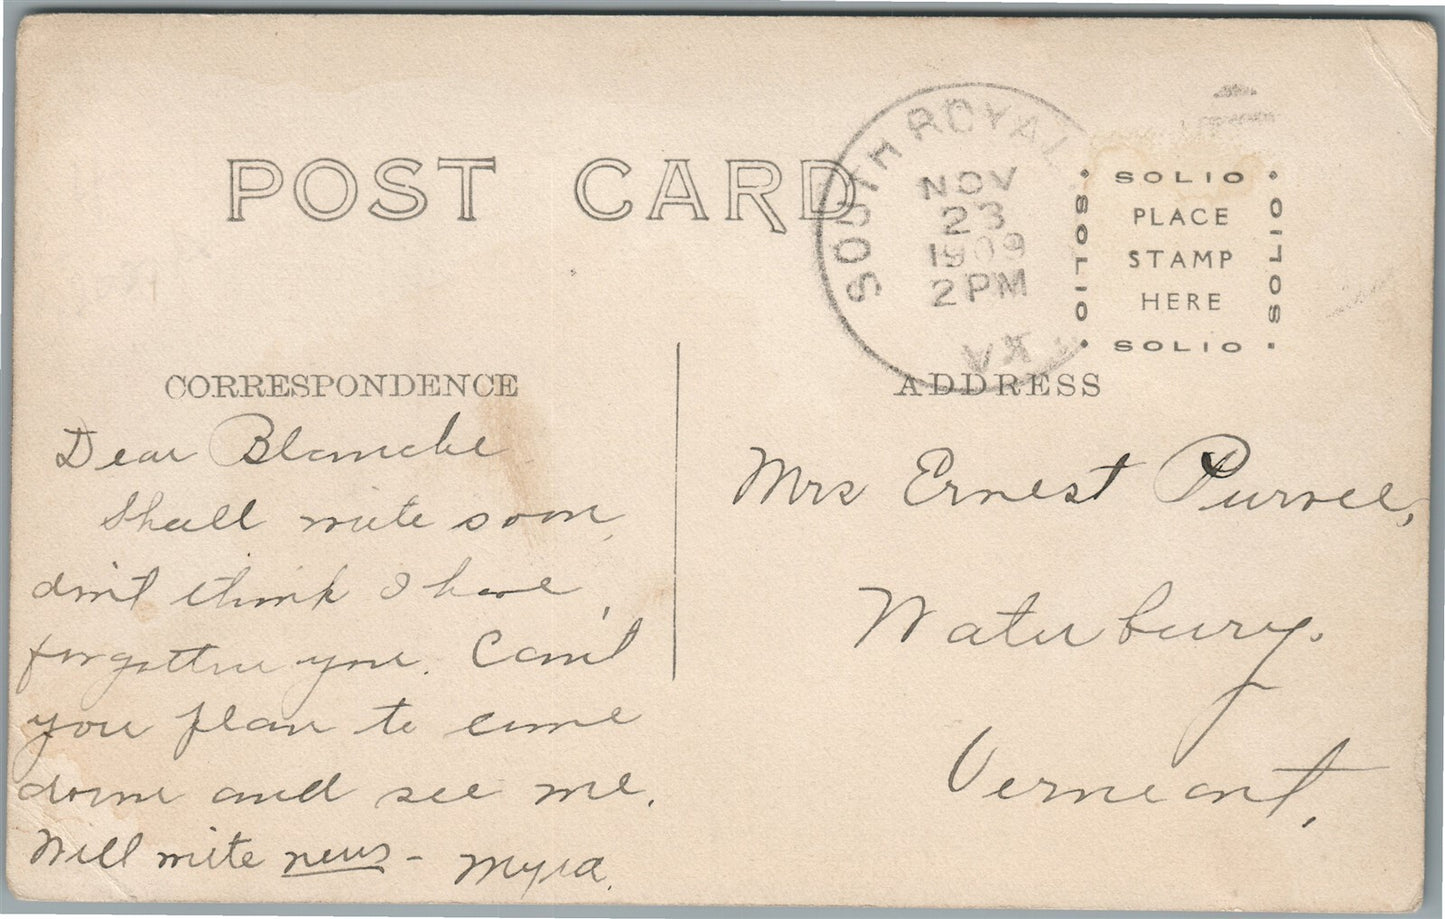 POST CARD
SOUTH ROYAL
NOV
23
1909
2 PM
SOLIO
SOLIO
PLACE
STAMP
HERE
SOLIO
SOLIO
CORRESPONDENCE
ADDRESS
Dear Blanche
Shall write soon,
don't think I have
forgotten you. Can't
you plan to come
down and see me.
Will write news - Myra.
Mrs Ernest
Waterbury.
Vermont.